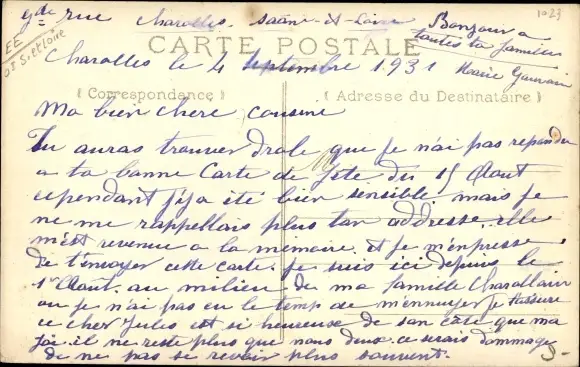 gde rue Charolles. Saône-et-Loire Bonjour a
toutes ta famille
Marie Gauvain
1023
EE
01 S. et Loire
CARTE POSTALE
Charolles le 4 Septembre 1931
(Correspondance) (Adresse du Destinataire)
Ma bien chere cousine
Tu auras trouver drole que je n'ai pas repondu
a ta bonne Carte de fete du 15 Aout
cependant j'y a été bien sensible. mais je
ne me rappellais plus ton addresse. elle
m'est revenue a la memoire. et je m'empresse
de t'envoyer cette carte. je suis ici depuis le
1er Aout. au milieu de ma famille Charollain
ou je n'ai pas eu le temps de m'ennuyer je t'assure
ce cher Jules est si heureuse de son côté que ma
foi. il ne reste plus que nous deux. ce serais dommage
de ne pas se revoir plus souvent.